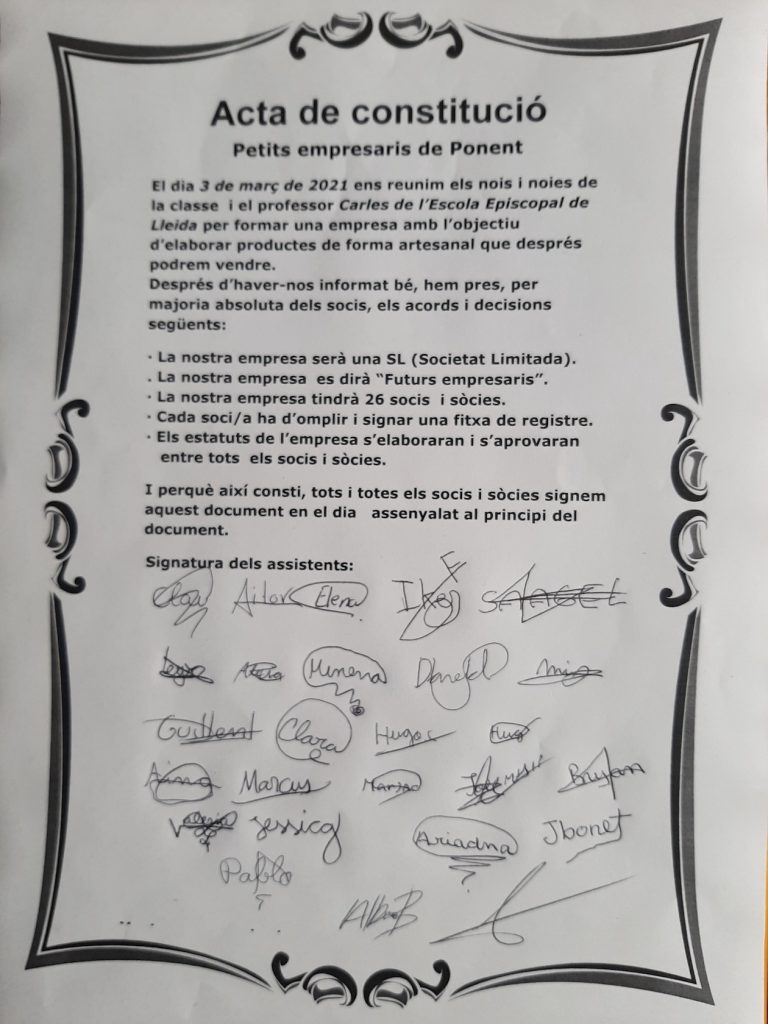 Acta de constitució
Petits empresaris de Ponent
El dia 3 de març de 2021 ens reunim els nois i noies de
la classe i el professor Carles de l'Escola Episcopal de
Lleida per formar una empresa amb l'objectiu
d'elaborar productes de forma artesanal que després
podrem vendre.
Després d'haver-nos informat bé, hem pres, per
majoria absoluta dels socis, els acords i decisions
següents:
· La nostra empresa serà una SL (Societat Limitada).
. La nostra empresa es dirà "Futurs empresaris".
· La nostra empresa tindrà 26 socis i sòcies.
· Cada soci/a ha d'omplir i signar una fitxa de registre.
· Els estatuts de l'empresa s'elaboraran i s'aprovaran
entre tots els socis i sòcies.
I perquè així consti, tots i totes els socis i sòcies signem
aquest document en el dia assenyalat al principi del
document.
Signatura dels assistents:
Aitor Elena
Clara Hugo
Marcus Bryan
Jessica Ariadna Jbonet
Pablo